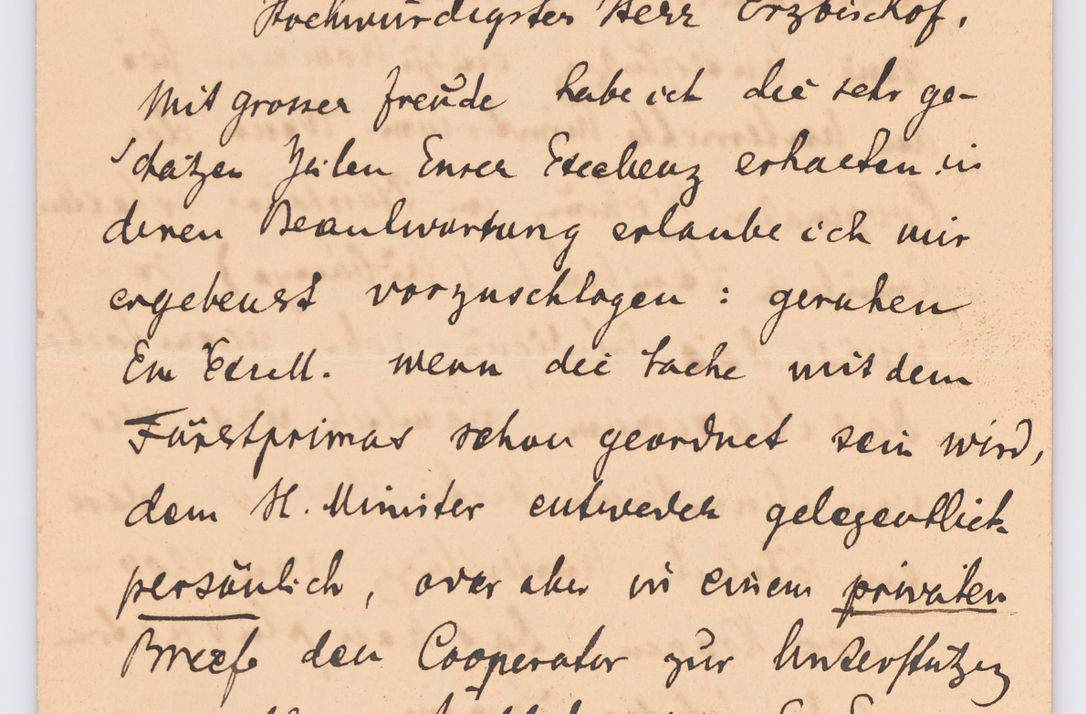 Hochwürdigster Herr Erzbischof,
Mit grosser Freude habe ich die sehr ge-
schätzen Zeilen Eurer Excellenz erhalten in
deren Beantwortung erlaube ich mir
ergebenst vorzuschlagen : geruhen
Eu Excell. wenn die Sache mit dem
Fürstprimas schon geordnet sein wird,
dem H. Minister entweder gelegentlich
persönlich, oder aber in einem privaten
Briefe den Cooperator zur Unterstützg